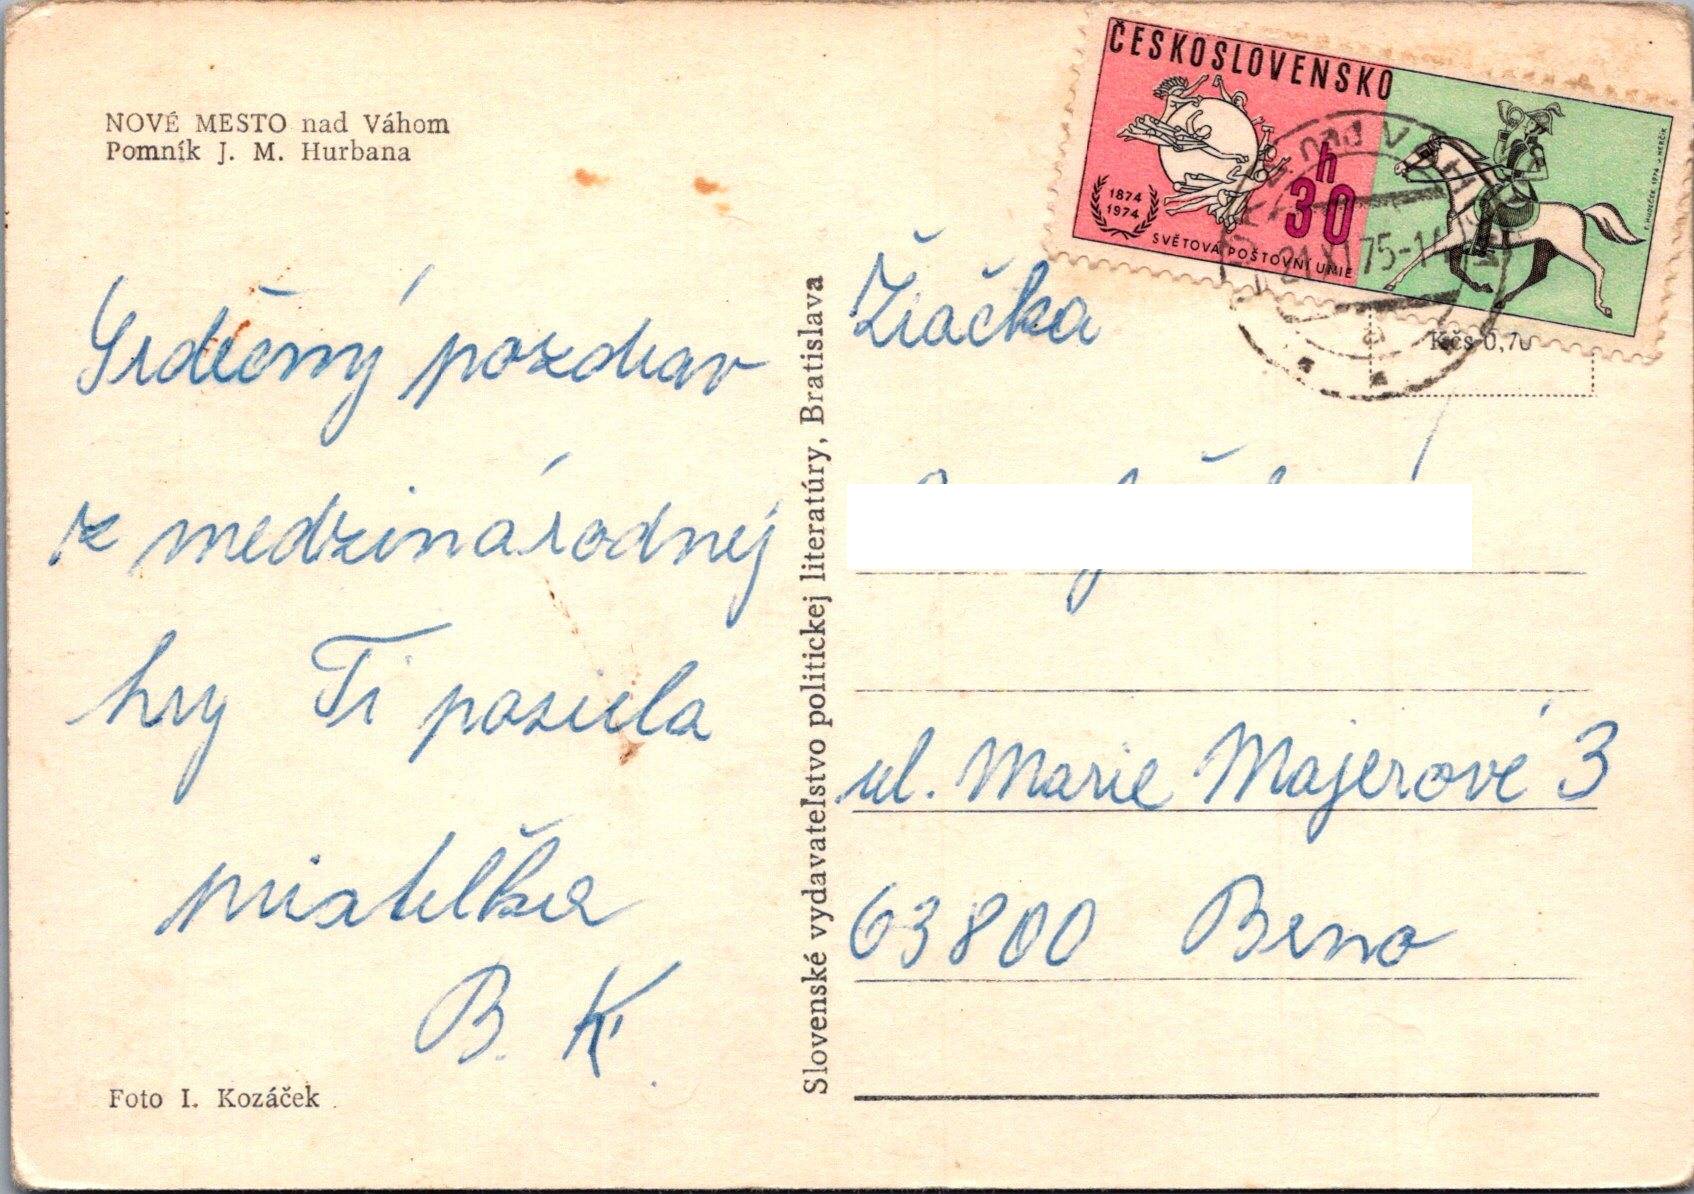 NOVÉ MESTO nad Váhom
Pomník J. M. Hurbana
Srdečný pozdrav
z medzinárodnej
hry Ti posiela
priateľka
B. K.
Foto I. Kozáček
Slovenské vydavateľstvo politickej literatúry, Bratislava
ČESKOSLOVENSKO
1874
1974
30 h
SVĚTOVÁ POŠTOVNÍ UNIE
75-14
Kčs 0,70
Žiačka
ul. Marie Majerové 3
63800 Brno